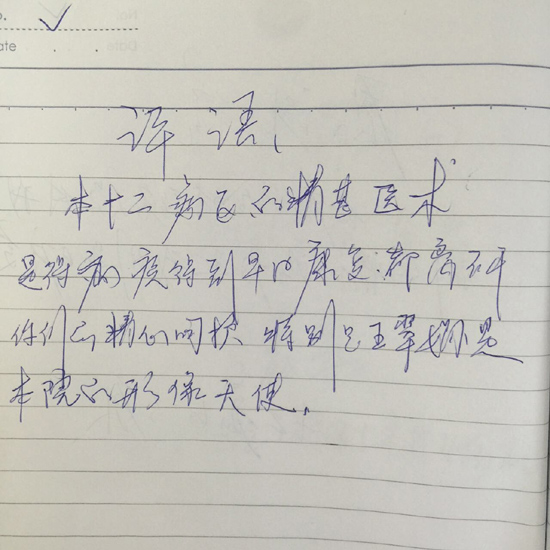 o.
ate
评语、
本十二病区的精甚医术
是得病痰得到早日康复.都离不开
你们的精心呵护 特别是王翠娜是
本院的形像天使.